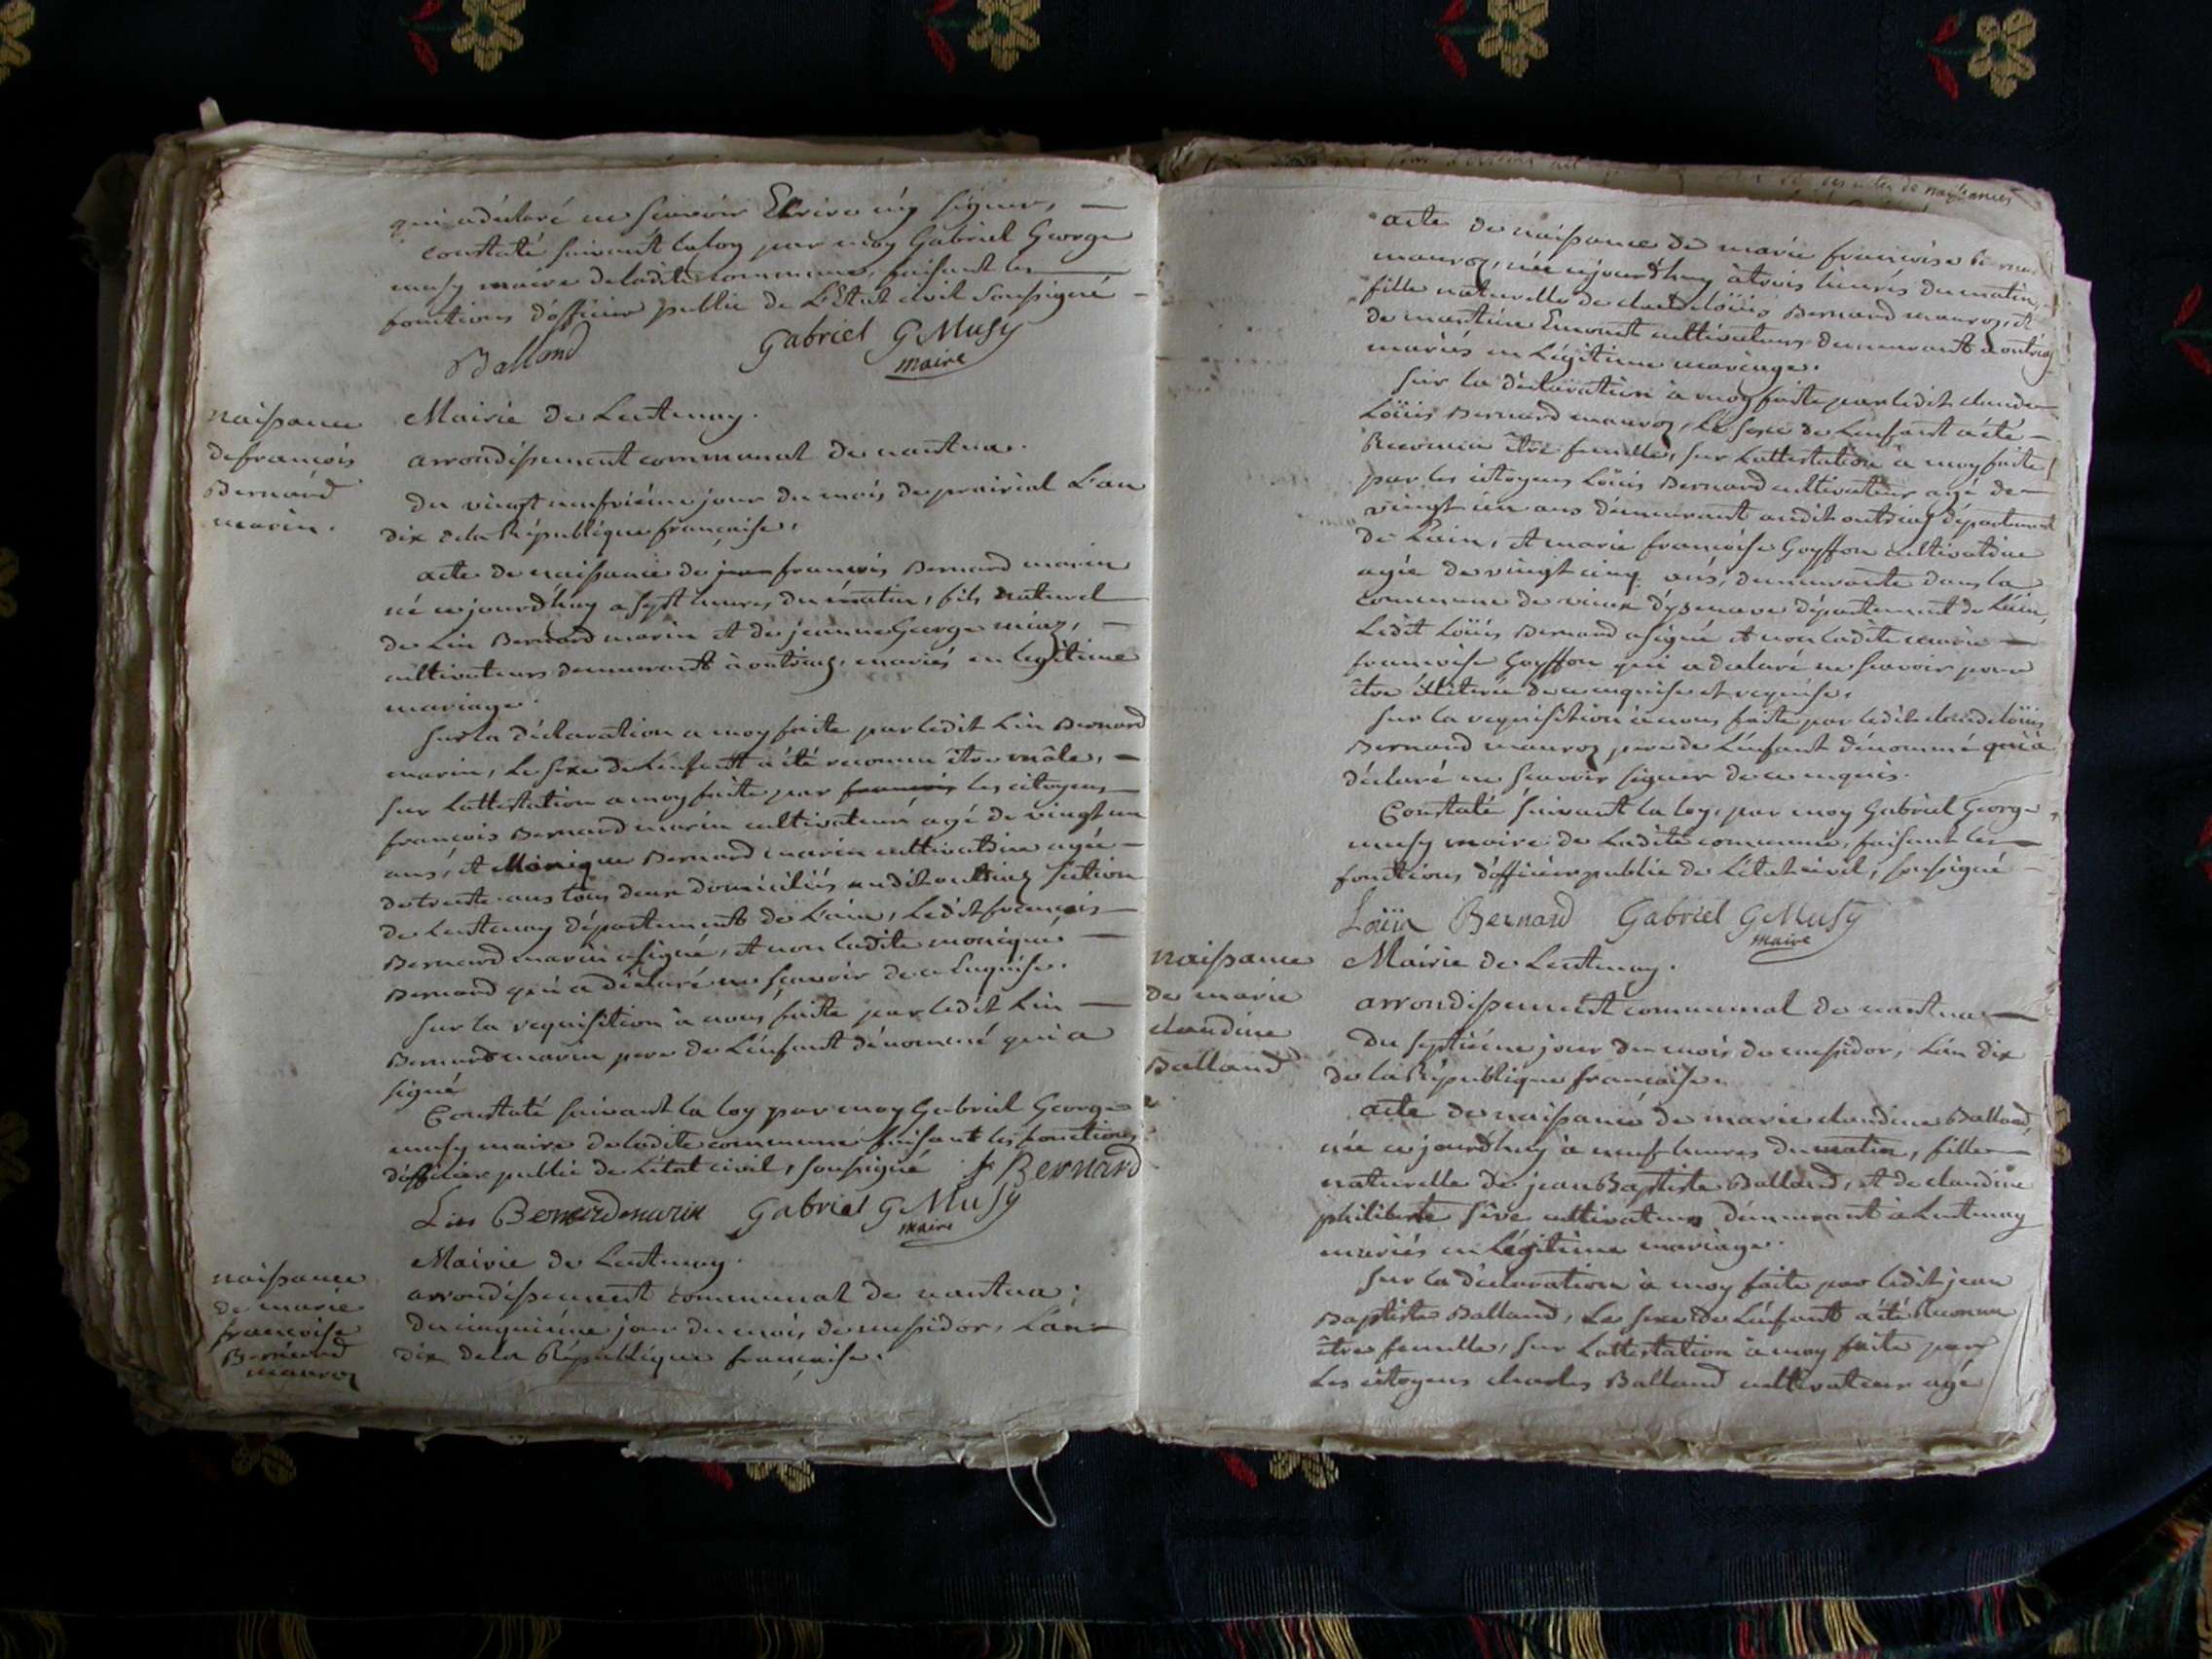 qui a déclaré ne scavoir Ecrire ny signer, —
constaté suivant la loy par moy Gabriel George
musy maire de ladite commune, faisant les
fonctions d'officier public de L'Etat civil soussigné —
Balland Gabriel G Musy
maire
naissance
de françois
Bernard
marin.
Mairie de Lentenay.
arrondissement communal de nantua.
du vingt neufvième jour du mois de prairial L'an
dix de la République française.
acte de naissance de jean françois Bernard marin
né cejourd'huy a sept heures du matin, fils naturel
de Lin Bernard marin et de jeanne George
cultivateurs demeurants à outriaz, mariés en legitime
mariage.
sur la déclaration a moy faite par ledit Lin Bernard
marin, le sexe de L'enfant a été reconnu être mâle, —
sur Lattestation a moy faite par françois les citoyens
françois Bernard marin cultivateur agé de vingt un
ans, et Monique Bernard marin cultivatrice agée —
de trente ans tous deux domiciliés audit outriaz section
de Lentenay département de L'ain, Ledit françois
Bernard marin a signé, et non ladite monique —
Bernard qui a déclaré ne scavoir de ce Enquise.
sur la requisition à nous faite par ledit Lin —
Bernard marin pere de L'enfant dénommé qui a
signé
Constaté suivant la loy par moy Gabriel George
musy maire de ladite commune faisant les fonctions
d'officier public de L'état civil, soussigné f Bernard
Lin Bernard marin Gabriel G Musy
maire
naissance
de marie
françoise
Bernard
mauroz
Mairie de Lentenay.
arrondissement communal de nantua;
du cinquième jour du mois de messidor, L'an
dix de la République française.
acte de naissance de marie françoise Bernard
mauroz, née cejourd'huy à trois heures du matin,
fille naturelle de claude Loüis Bernard mauroz, et
de martine Emonet cultivateurs demeurants a outriaz
mariés en Légitime mariage.
sur la déclaration à moy faite par ledit claude
Loüis Bernard mauroz, le sexe de L'enfant a été —
Reconnu être femelle, sur Lattestation à moy faite
par les citoyens Loüis Bernard cultivateur agé de —
vingt un ans demeurant audit outriaz département
de L'ain, et marie françoise Goyffon cultivatrice
agée de vingt cinq ans, demeurante dans la
commune de vieux d'yzenave département de L'ain,
Ledit Loüis Bernard a signé et non ladite marie —
françoise Goyffon qui a declaré ne scavoir pour
être illiterée de ce enquise et requise.
sur la requisition à nous faite par ledit claude Loüis
Bernard mauroz pere de L'enfant dénommé qui a
déclaré ne scavoir signer de ce enquis.
Constaté suivant la loy, par moy Gabriel George
musy maire de Ladite commune, faisant les
fonctions d'officier public de L'état civil, soussigné —
Loüis Bernard Gabriel G Musy
maire
naissance
de marie
claudine
Balland
Mairie de Lentenay.
arrondissement communal de nantua —
du septième jour du mois de messidor, L'an dix
de la République française.
acte de naissance de marie claudine Balland,
née cejourd'huy à neuf heures du matin, fille
naturelle de jean Baptiste Balland, et de claudine
philiberte sève cultivateurs demeurant à Lentenay
mariés en Légitime mariage.
sur la déclaration à moy faite par ledit jean
Baptiste Balland, Le sexe de L'enfant a été Reconnu
être femelle, sur Lattestation à moy faite par
Les citoyens charles Balland cultivateur agé